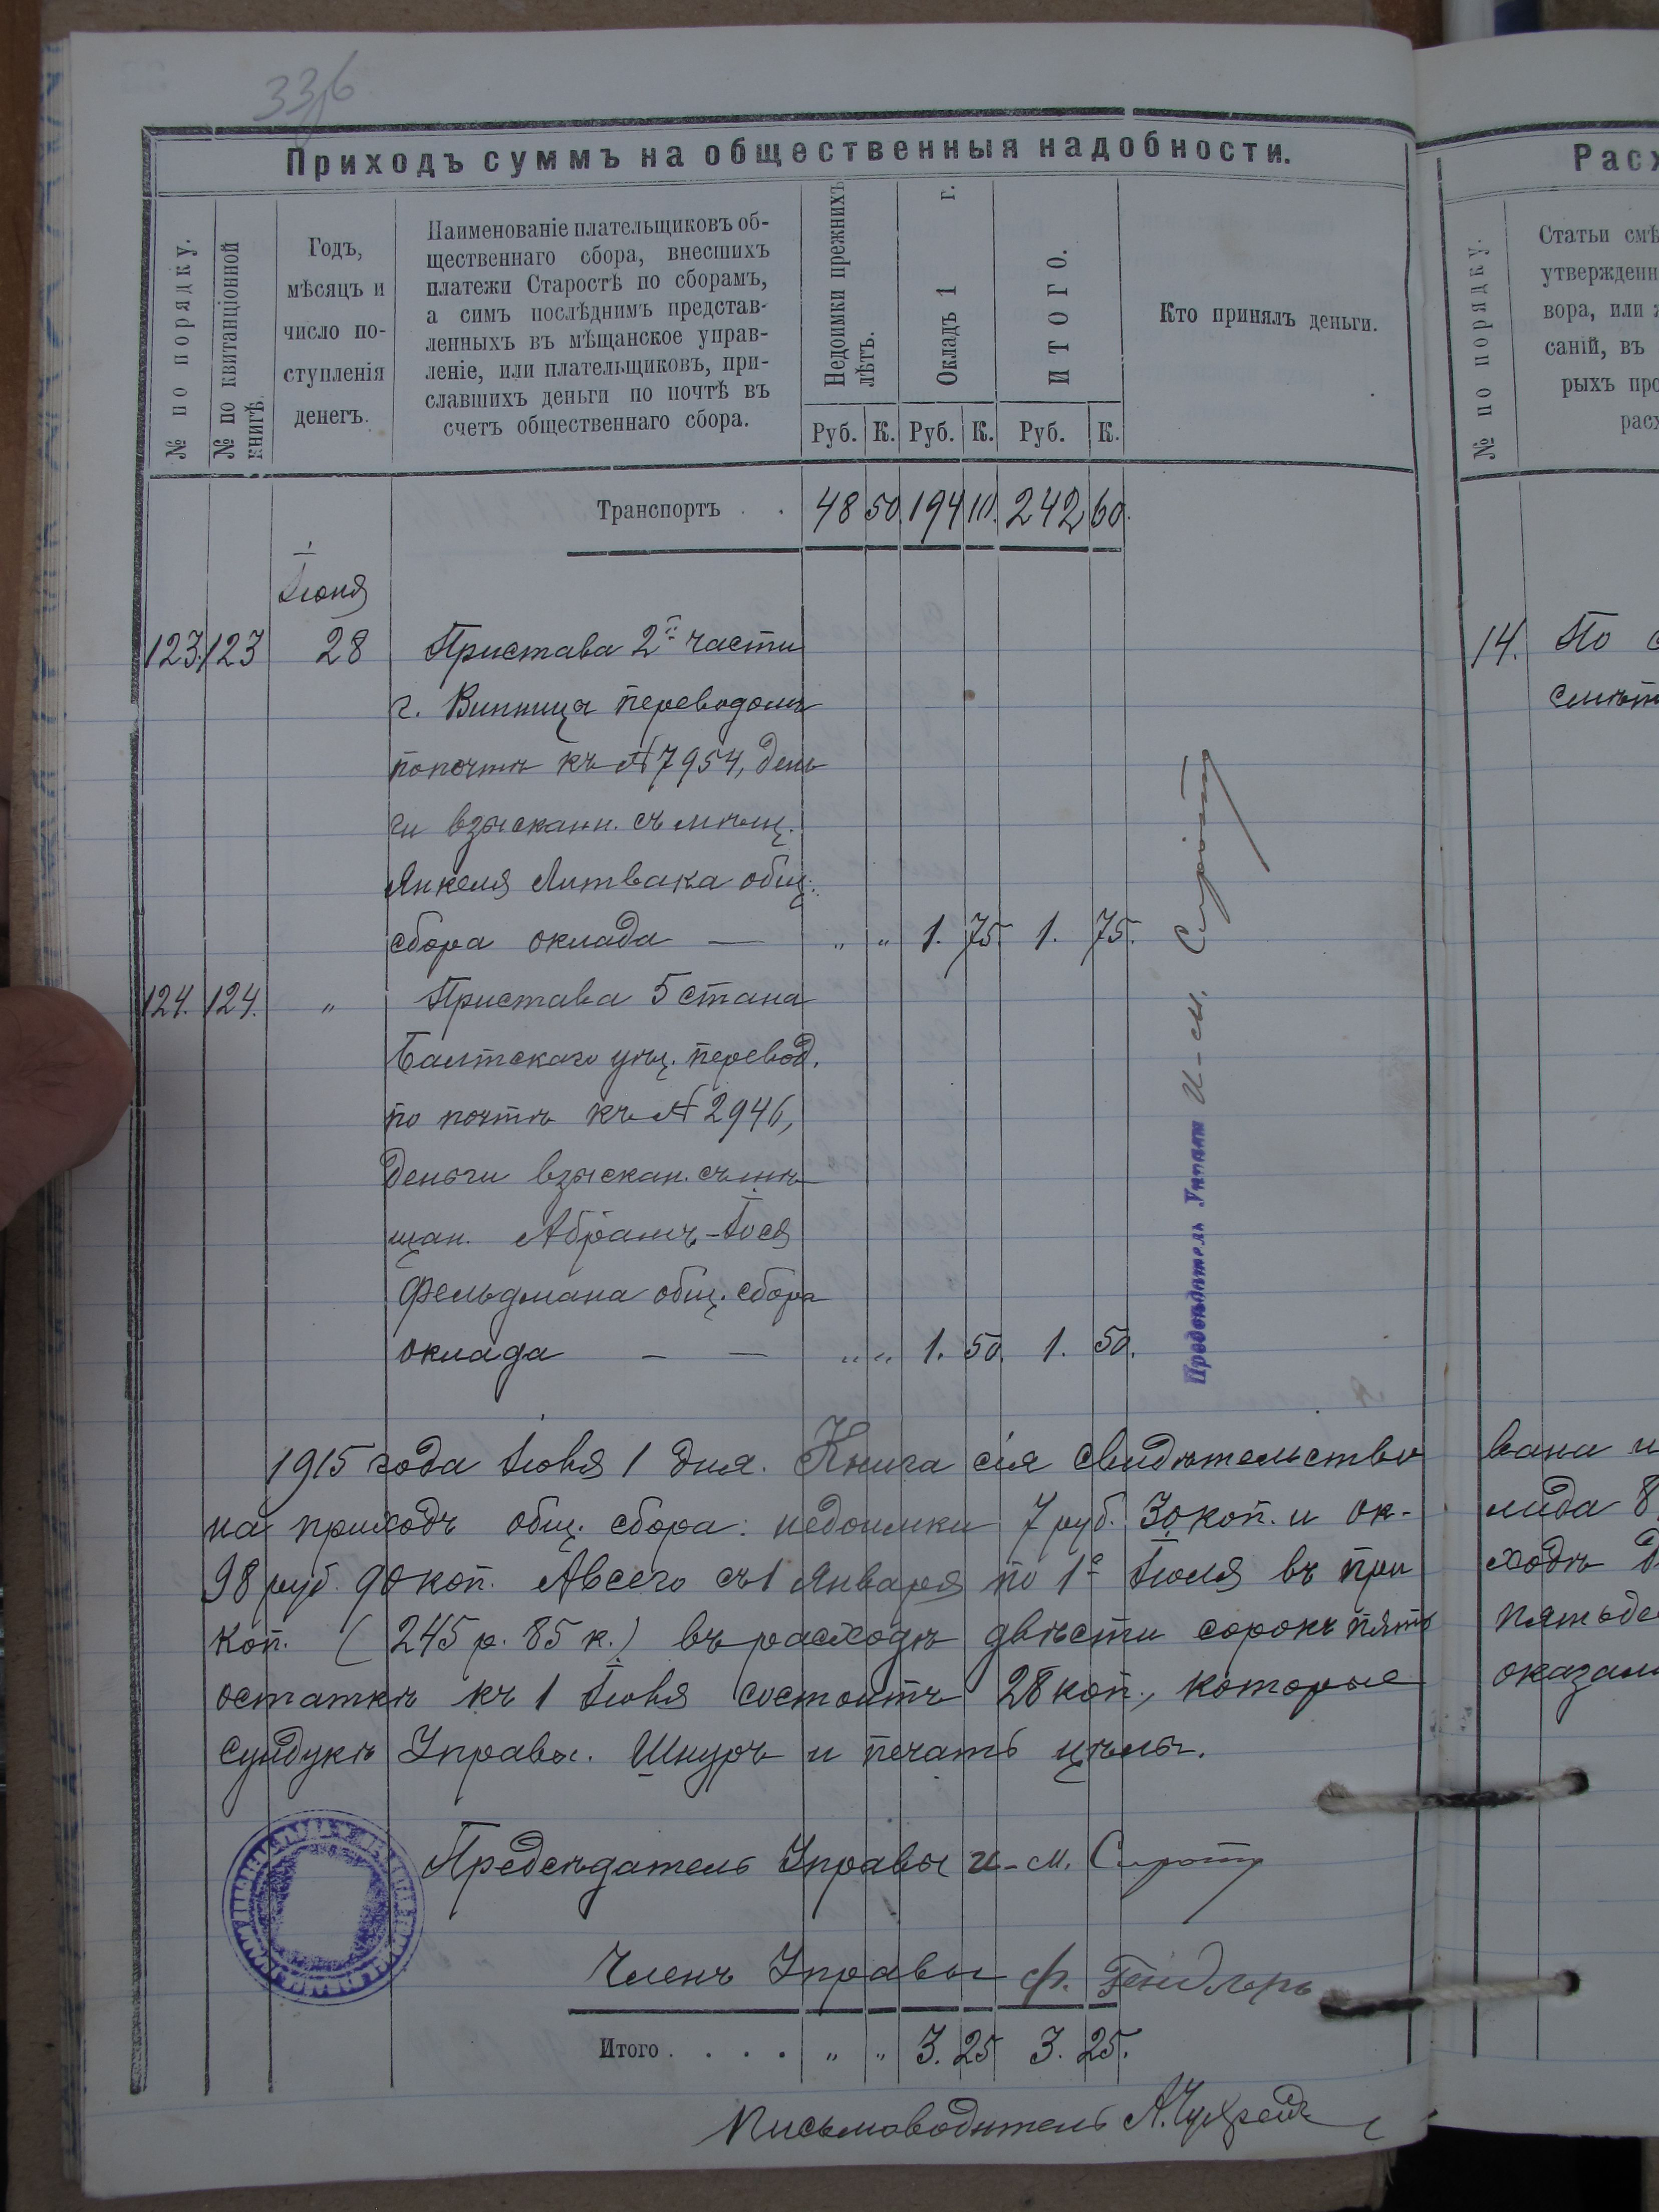 336
Приходъ суммъ на общественныя надобности.
№ по порядку.
№ по квитанціонной книгѣ.
Годъ,
мѣсяцъ и
число по-
ступленія
денегъ.
Наименованіе плательщиковъ об-
щественнаго сбора, внесшихъ
платежи Старостѣ по сборамъ,
а симъ послѣднимъ представ-
ленныхъ въ мѣщанское управ-
леніе, или плательщиковъ, при-
славшихъ деньги по почтѣ въ
счетъ общественнаго сбора.
Недоимки прежнихъ лѣтъ.
Окладъ 1 г.
ИТОГО.
Кто принялъ деньги.
Руб. К. Руб. К. Руб. К.
Транспортъ . . 48 50. 194 10. 242 60.
Іюня
123. 123 28 Пристава 2й части
г. Винница переводомъ
по почтѣ къ № 7954, день
ги взыскан. съ мѣщ.
Янкеля Литвака общ.
сбора оклада — " " 1. 75. 1. 75.
124. 124. " Пристава 5 стана
Балтскаго уѣз. перевод.
по почтѣ къ № 2946,
деньги взыскан. съ мѣ-
щан. Абрамъ-Іося
Фельдмана общ. сбора
оклада — — " " 1. 50. 1. 50.
Предсѣдатель Управы И-М. Сирота
1915 года Іюля 1 дня. Книга сія свидѣтельство
на приходъ общ. сбора: недоимки 7 руб. 30 коп. и ок-
98 руб. 90 коп. А всего съ 1 Января по 1е Іюля въ при
коп. (245 р. 85 к.) въ расходѣ двѣсти сорокъ пять
остаткѣ къ 1 Іюля состоитъ 28 коп., которые
сундукѣ Управы. Шнуръ и печать цѣлы.
Предсѣдатель Управы И-М. Сирота
Членъ Управы Ф. Гендлеръ
Итого . . . . " " 3. 25 3. 25.
Письмоводитель А.
Расх
№ по порядку.
Статьи смѣ
утвержденн
вора, или
саній, въ
рыхъ про
расх
14. По с
смѣт
вана и
лада 8
ходѣ д
пятьде
оказал